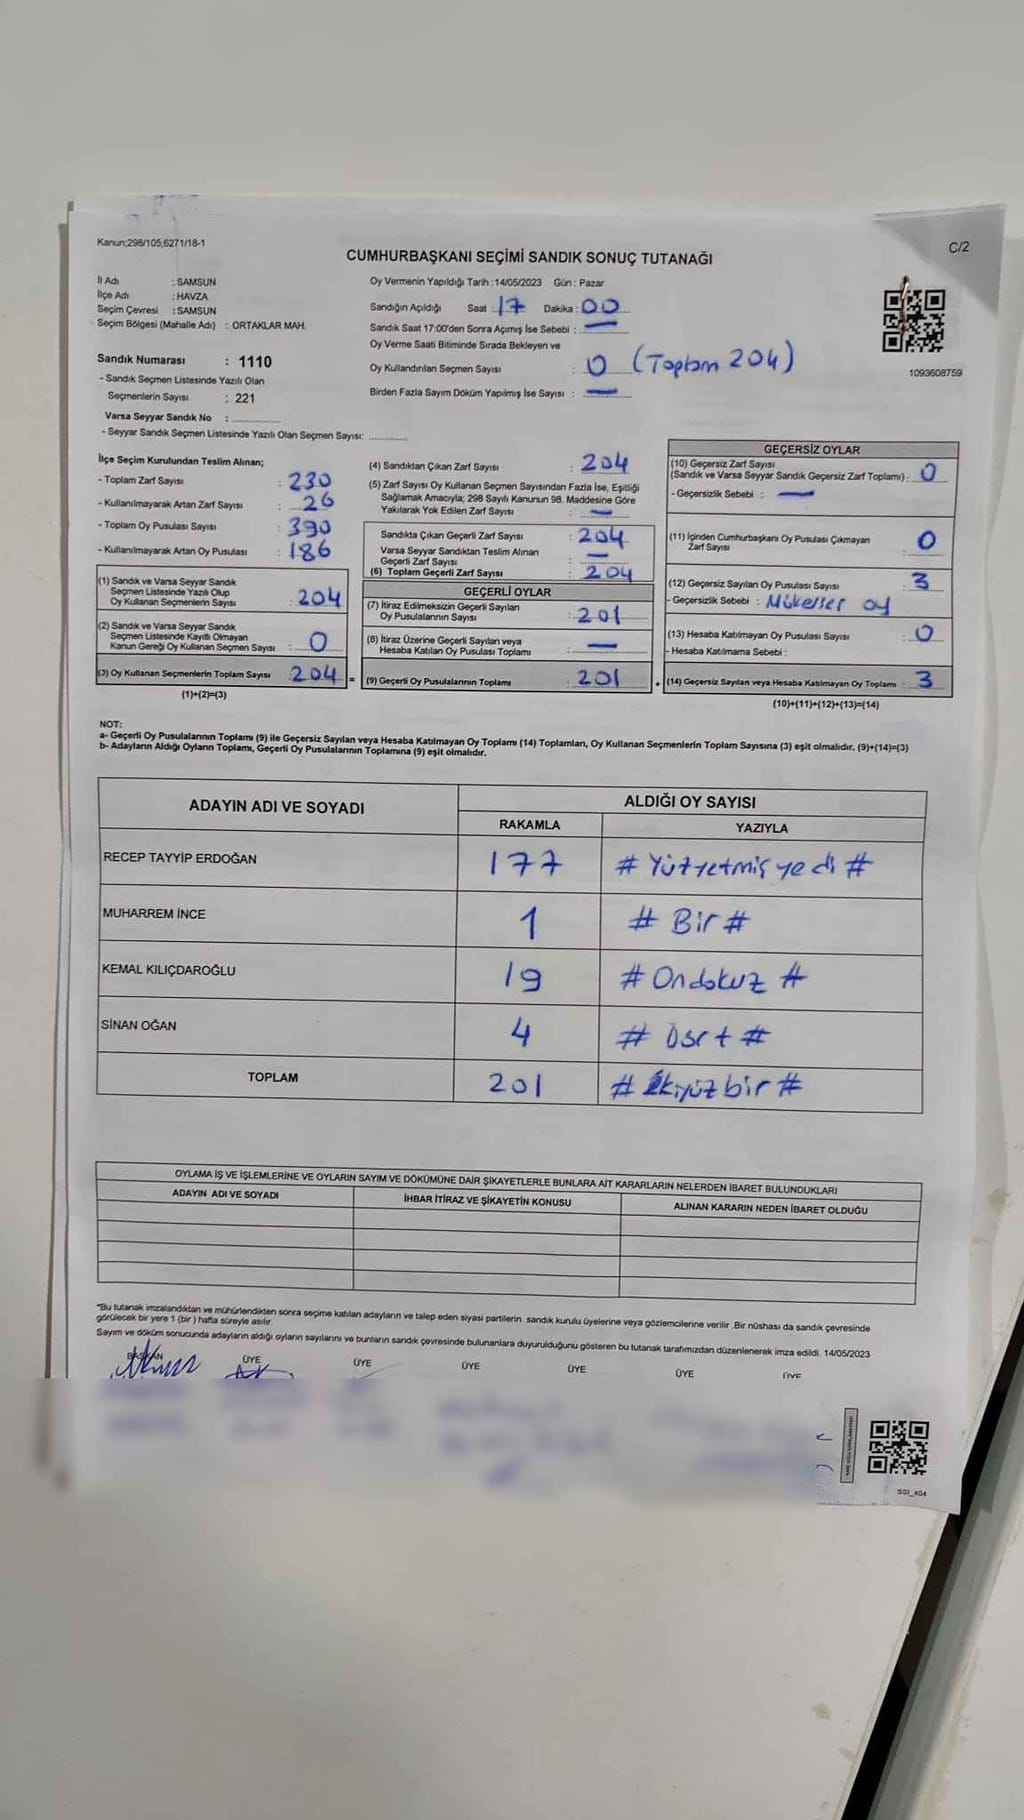 Kanun;298/105;6271/18-1
C/2
CUMHURBAŞKANI SEÇİMİ SANDIK SONUÇ TUTANAĞI
İl Adı : SAMSUN
İlçe Adı : HAVZA
Seçim Çevresi : SAMSUN
Seçim Bölgesi (Mahalle Adı) : ORTAKLAR MAH.
Sandık Numarası : 1110
- Sandık Seçmen Listesinde Yazılı Olan
Seçmenlerin Sayısı : 221
Varsa Seyyar Sandık No :
- Seyyar Sandık Seçmen Listesinde Yazılı Olan Seçmen Sayısı:
Oy Vermenin Yapıldığı Tarih : 14/05/2023 Gün : Pazar
Sandığın Açıldığı Saat : 17 Dakika : 00
Sandık Saat 17:00'den Sonra Açımış İse Sebebi : —
Oy Verme Saati Bitiminde Sırada Bekleyen ve
Oy Kullandırılan Seçmen Sayısı : 0 (Toplam 204)
Birden Fazla Sayım Döküm Yapılmış İse Sayısı : —
1093608759
İlçe Seçim Kurulundan Teslim Alınan;
- Toplam Zarf Sayısı : 230
- Kullanılmayarak Artan Zarf Sayısı : 26
- Toplam Oy Pusulası Sayısı : 390
- Kullanılmayarak Artan Oy Pusulası : 186
(1) Sandık ve Varsa Seyyar Sandık
Seçmen Listesinde Yazılı Olup
Oy Kullanan Seçmenlerin Sayısı : 204
(2) Sandık ve Varsa Seyyar Sandık
Seçmen Listesinde Kayıtlı Olmayan
Kanun Gereği Oy Kullanan Seçmen Sayısı : 0
(3) Oy Kullanan Seçmenlerin Toplam Sayısı : 204 =
(1)+(2)=(3)
(4) Sandıktan Çıkan Zarf Sayısı : 204
(5) Zarf Sayısı Oy Kullanan Seçmen Sayısından Fazla İse, Eşitliği
Sağlamak Amacıyla; 298 Sayılı Kanunun 98. Maddesine Göre
Yakılarak Yok Edilen Zarf Sayısı : —
Sandıkta Çıkan Geçerli Zarf Sayısı : 204
Varsa Seyyar Sandıktan Teslim Alınan
Geçerli Zarf Sayısı : —
(6) Toplam Geçerli Zarf Sayısı : 204
GEÇERLİ OYLAR
(7) İtiraz Edilmeksizin Geçerli Sayılan
Oy Pusulalarının Sayısı : 201
(8) İtiraz Üzerine Geçerli Sayılan veya
Hesaba Katılan Oy Pusulası Toplamı : —
(9) Geçerli Oy Pusulalarının Toplamı : 201 +
GEÇERSİZ OYLAR
(10) Geçersiz Zarf Sayısı
(Sandık ve Varsa Seyyar Sandık Geçersiz Zarf Toplamı) : 0
- Geçersizlik Sebebi : —
(11) İçinden Cumhurbaşkanı Oy Pusulası Çıkmayan
Zarf Sayısı : 0
(12) Geçersiz Sayılan Oy Pusulası Sayısı : 3
- Geçersizlik Sebebi : Mükerrer oy
(13) Hesaba Katılmayan Oy Pusulası Sayısı : 0
- Hesaba Katılmama Sebebi :
(14) Geçersiz Sayılan veya Hesaba Katılmayan Oy Toplamı : 3
(10)+(11)+(12)+(13)=(14)
NOT:
a- Geçerli Oy Pusulalarının Toplamı (9) ile Geçersiz Sayılan veya Hesaba Katılmayan Oy Toplamı (14) Toplamları, Oy Kullanan Seçmenlerin Toplam Sayısına (3) eşit olmalıdır. (9)+(14)=(3)
b- Adayların Aldığı Oyların Toplamı, Geçerli Oy Pusulalarının Toplamına (9) eşit olmalıdır.
ADAYIN ADI VE SOYADI ALDIĞI OY SAYISI
RAKAMLA YAZIYLA
RECEP TAYYİP ERDOĞAN 177 # Yüzyetmiş yedi #
MUHARREM İNCE 1 # Bir #
KEMAL KILIÇDAROĞLU 19 # Ondokuz #
SİNAN OĞAN 4 # Dört #
TOPLAM 201 # İkiyüzbir #
OYLAMA İŞ VE İŞLEMLERİNE VE OYLARIN SAYIM VE DÖKÜMÜNE DAİR ŞİKAYETLERLE BUNLARA AİT KARARLARIN NELERDEN İBARET BULUNDUKLARI
ADAYIN ADI VE SOYADI İHBAR İTİRAZ VE ŞİKAYETİN KONUSU ALINAN KARARIN NEDEN İBARET OLDUĞU
*Bu tutanak imzalandıktan ve mühürlendikten sonra seçime katılan adayların ve talep eden siyasi partilerin sandık kurulu üyelerine veya gözlemcilerine verilir .Bir nüshası da sandık çevresinde
görülecek bir yere 1 (bir ) hafta süreyle asılır.
Sayım ve döküm sonucunda adayların aldığı oyların sayılarını ve bunların sandık çevresinde bulunanlara duyurulduğunu gösteren bu tutanak tarafımızdan düzenlenerek imza edildi. 14/05/2023
BAŞKAN ÜYE ÜYE ÜYE ÜYE ÜYE ÜYE
SSI_404